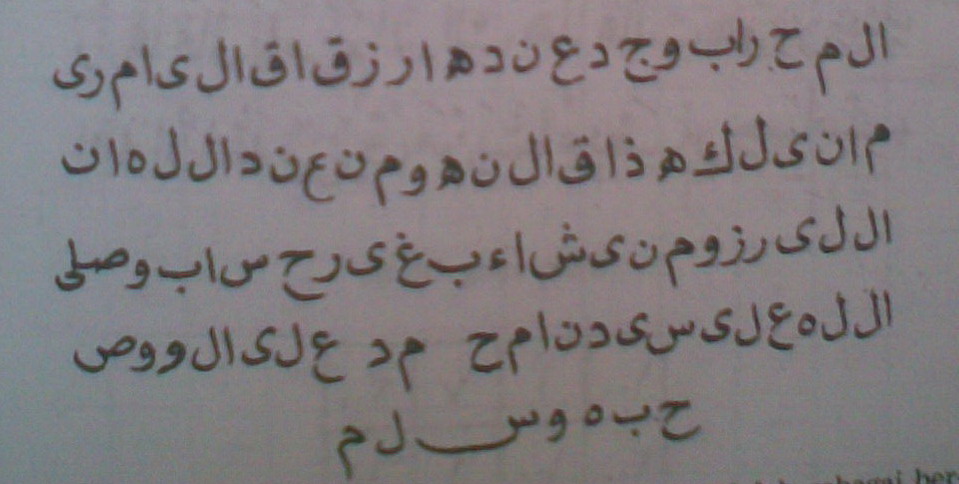 ال م ح راب وج د ع ن د ه ا ر ز ق ا ق ال ى ا م ر ى
م ا ن ى ل ك ه ذ ا ق ال ن ه و م ن ع ن د ال ل ه ا ن
ال ل ى ر ز و م ن ى ش ا ء ب غ ى ر ح س ا ب و صلى
ال ل ه ع ل ى س ى د ن ا م ح م د ع ل ى ال و و ص
ح ب ه و س ل م